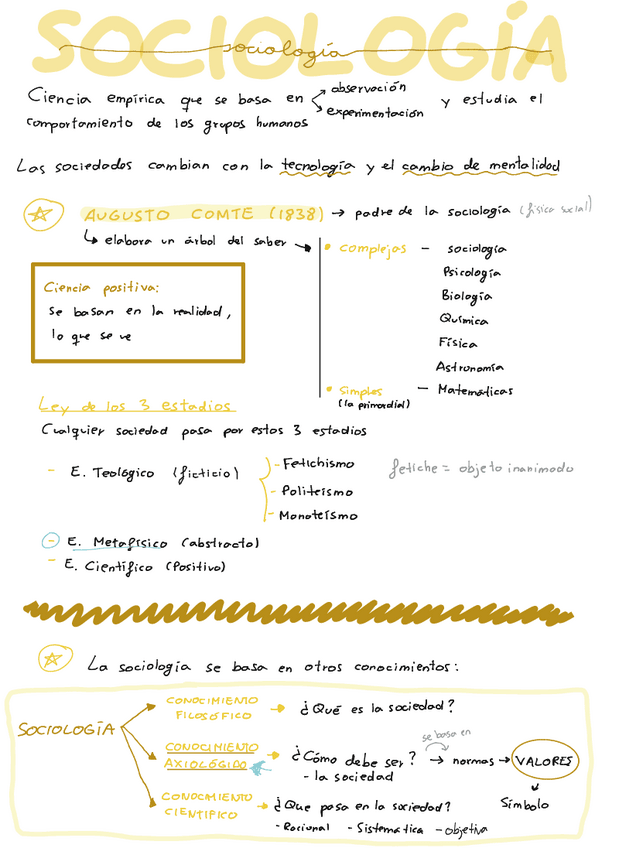 SOCIOLOGÍA
sociología
Ciencia empírica que se basa en → observación → experimentación y estudia el
comportamiento de los grupos humanos
Las sociedades cambian con la tecnología y el cambio de mentalidad
AUGUSTO COMTE (1838) → padre de la sociología (física social)
↳ elabora un árbol del saber → • Complejas - sociología
Psicología
Biología
Química
Física
Astronomía
• Simples - Matemáticas
(la primordial)
Ciencia positiva:
se basan en la realidad,
lo que se ve
Ley de los 3 estadios
Cualquier sociedad pasa por estos 3 estadios
- E. Teológico (ficticio)
- Fetichismo
- Politeísmo
- Monoteísmo
fetiche = objeto inanimado
- E. Metafísico (abstracto)
- E. Científico (Positivo)
La sociología se basa en otros conocimientos:
SOCIOLOGÍA
CONOCIMIENTO
FILOSÓFICO
→ ¿Qué es la sociedad?
CONOCIMIENTO
AXIOLÓGICO
→ ¿Cómo debe ser? → normas → VALORES
- la sociedad
se basa en
Símbolo
CONOCIMIENTO
CIENTÍFICO
→ ¿Que pasa en la sociedad?
- Racional - Sistemática - objetiva